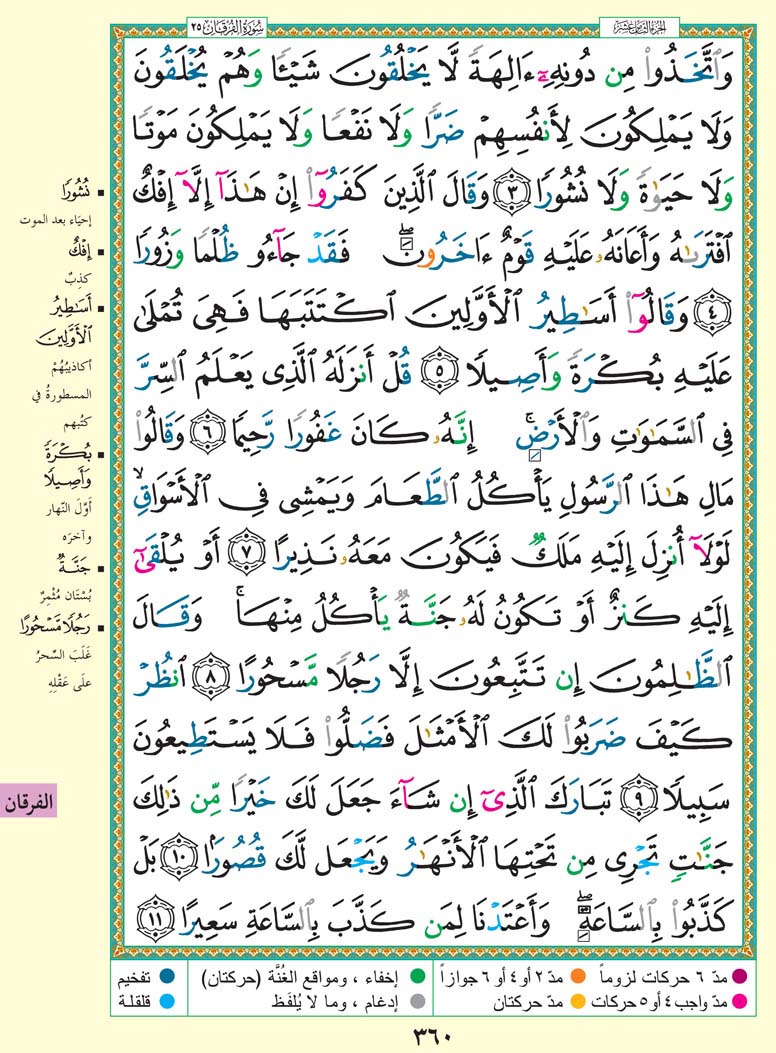 الجزء الثامن عشر
سُورَةُ الفُرْقَانِ ٢٥
وَٱتَّخَذُواْ مِن دُونِهِۦٓ ءَالِهَةٗ لَّا يَخۡلُقُونَ شَيۡـٔٗا وَهُمۡ يُخۡلَقُونَ
وَلَا يَمۡلِكُونَ لِأَنفُسِهِمۡ ضَرّٗا وَلَا نَفۡعٗا وَلَا يَمۡلِكُونَ مَوۡتٗا
وَلَا حَيَوٰةٗ وَلَا نُشُورٗا ٣ وَقَالَ ٱلَّذِينَ كَفَرُوٓاْ إِنۡ هَٰذَآ إِلَّآ إِفۡكٌ
ٱفۡتَرَىٰهُ وَأَعَانَهُۥ عَلَيۡهِ قَوۡمٌ ءَاخَرُونَۖ فَقَدۡ جَآءُو ظُلۡمٗا وَزُورٗا
٤ وَقَالُوٓاْ أَسَٰطِيرُ ٱلۡأَوَّلِينَ ٱكۡتَتَبَهَا فَهِيَ تُمۡلَىٰ
عَلَيۡهِ بُكۡرَةٗ وَأَصِيلٗا ٥ قُلۡ أَنزَلَهُ ٱلَّذِي يَعۡلَمُ ٱلسِّرَّ
فِي ٱلسَّمَٰوَٰتِ وَٱلۡأَرۡضِۚ إِنَّهُۥ كَانَ غَفُورٗا رَّحِيمٗا ٦ وَقَالُواْ
مَالِ هَٰذَا ٱلرَّسُولِ يَأۡكُلُ ٱلطَّعَامَ وَيَمۡشِي فِي ٱلۡأَسۡوَاقِ ۙ
لَوۡلَآ أُنزِلَ إِلَيۡهِ مَلَكٞ فَيَكُونَ مَعَهُۥ نَذِيرًا ٧ أَوۡ يُلۡقَىٰٓ
إِلَيۡهِ كَنزٌ أَوۡ تَكُونُ لَهُۥ جَنَّةٞ يَأۡكُلُ مِنۡهَاۚ وَقَالَ
ٱلظَّٰلِمُونَ إِن تَتَّبِعُونَ إِلَّا رَجُلٗا مَّسۡحُورًا ٨ ٱنظُرۡ
كَيۡفَ ضَرَبُواْ لَكَ ٱلۡأَمۡثَٰلَ فَضَلُّواْ فَلَا يَسۡتَطِيعُونَ
سَبِيلٗا ٩ تَبَارَكَ ٱلَّذِيٓ إِن شَآءَ جَعَلَ لَكَ خَيۡرٗا مِّن ذَٰلِكَ
جَنَّٰتٖ تَجۡرِي مِن تَحۡتِهَا ٱلۡأَنۡهَٰرُ وَيَجۡعَل لَّكَ قُصُورَۢا ١٠ بَلۡ
كَذَّبُواْ بِٱلسَّاعَةِۖ وَأَعۡتَدۡنَا لِمَن كَذَّبَ بِٱلسَّاعَةِ سَعِيرًا ١١
نُشُورًا
إحيَاء بعد الموت
إِفْكٌ
كذِبٌ
أَسَٰطِيرُ
ٱلۡأَوَّلِينَ
أكاذيبُهُمْ
المسطورةُ في
كتُبهم
بُكۡرَةٗ
وَأَصِيلٗا
أوّلَ النّهار
وآخرَه
جَنَّةٞ
بُسْتَان مُثْمِرٌ
رَجُلٗا مَّسۡحُورًا
غَلَبَ السِّحرُ
علَى عَقْلِهِ
الفرقان
مدّ ٦ حركات لزوماً
مدّ ٢ أو ٤ أو ٦ جوازاً
إخفاء ، ومواقع الغُنَّة (حركتان)
تفخيم
مدّ واجب ٤ أو ٥ حركات
مدّ حركتان
إدغام ، وما لا يُلفَظ
قلقلة
٣٦٠